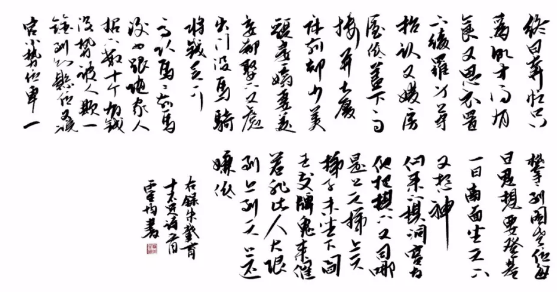 终日奔忙只
为饥才得有
食又思衣置
下绫罗身上穿
抬头又嫌房
屋低盖下高
楼并大厦
床前却少美
貌妻娇妻美妾
都娶下又虑
出门没马骑
将钱买下
高头马马前马
后少跟随家人
招下数十个有钱
没势被人欺一
铨到知县位又说
官小势位卑一
攀到阁老位每
日思想要登基
一日南面坐天下
又想神仙
来下棋洞宾与
他把棋下又问哪
是上天梯上天
梯子未坐下阎
王发牌鬼来催
若非此人大限
到上到天上还
嫌低
右录朱载堉
十不足诗一首